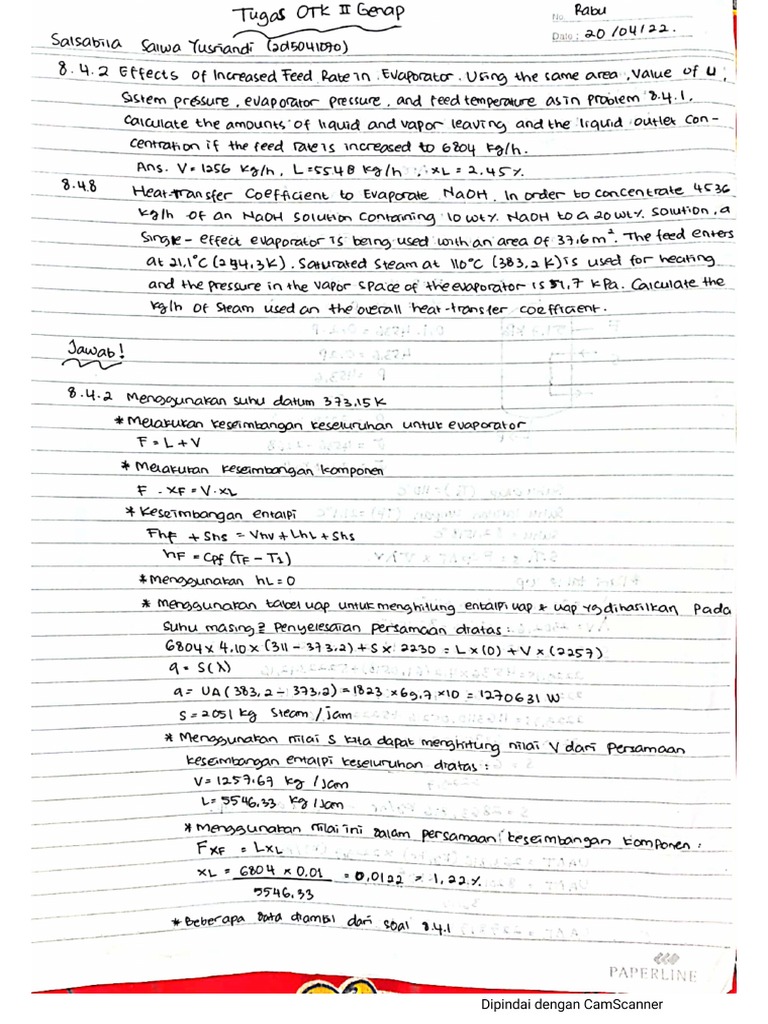 Tugas OTK II Genap
No. Rabu
Date: 20/04/22.
Salsabila Salwa Yusriandi (2015041090)
8.4.2 Effects of Increased Feed Rate in Evaporator. Using the same area, Value of U,
Sistem pressure, evaporator pressure, and feed temperature as in problem 8.4.1,
Calculate the amounts of liquid and vapor leaving and the liquid outlet con-
centration if the feed rate is increased to 6804 kg/h.
Ans. V = 1256 kg/h, L = 5548 kg/h, XL = 2.45%
8.4.8 Heat-transfer Coefficient to Evaporate NaOH. In order to concentrate 4536
kg/h of an NaOH solution containing 10 wt% NaOH to a 20 wt% solution, a
Single-effect evaporator is being used with an area of 37,6 m². The feed enters
at 21,1°C (294,3K). Saturated Steam at 110°C (383,2 K) is used for heating
and the pressure in the vapor space of the evaporator is 51,7 kPa. Calculate the
kg/h Of Steam used an the overall heat-transfer coefficient.
Jawab!
8.4.2 Menggunakan suhu datum 373,15 K
* Melakukan keseimbangan keseluruhan untuk evaporator
F = L + V
* Melakukan keseimbangan komponen
F . XF = V . XL
* Keseimbangan entalpi
Fhf + Shs = Vhv + LhL + Shs
hF = Cpf (TF - T1)
* Menggunakan hL = 0
* Menggunakan tabel uap untuk menghitung entalpi uap & uap yg dihasilkan pada
suhu masing2 Penyelesaian Persamaan diatas :
6804 x 4.10 x (311 - 373.2) + S x 2230 = L x (0) + V x (2257)
q = S(λ)
q = UA (383,2 - 373,2) = 1823 x 69,7 x 10 = 1270631 W
S = 2051 kg Steam / jam
* Menggunakan nilai S kita dapat menghitung nilai V dari Persamaan
keseimbangan entalpi keseluruhan diatas :
V = 1257.67 kg / Jam
L = 5546.33 kg / Jam
* Menggunakan nilai ini dalam persamaan keseimbangan komponen :
FXF = LXL
XL = 6804 x 0.01 = 0,0122 = 1,22 %
5546.33
* Beberapa data diambil dari soal 8.4.1
PAPERLINE
Dipindai dengan CamScanner